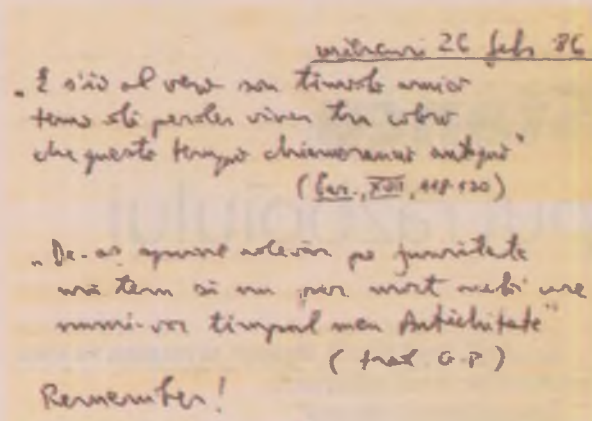 miercuri 26 febr 86
„E s'io al vero son timido amico
temo di perder viver tra coloro
che questo tempo chiameranno antiquo”
(Par., XVII, 118-120)
„De-aș spune adevăr pe jumătate
mă tem să nu par mort
numi-vor timpul meu Antichitate”
(trad. G. P)
Remember!